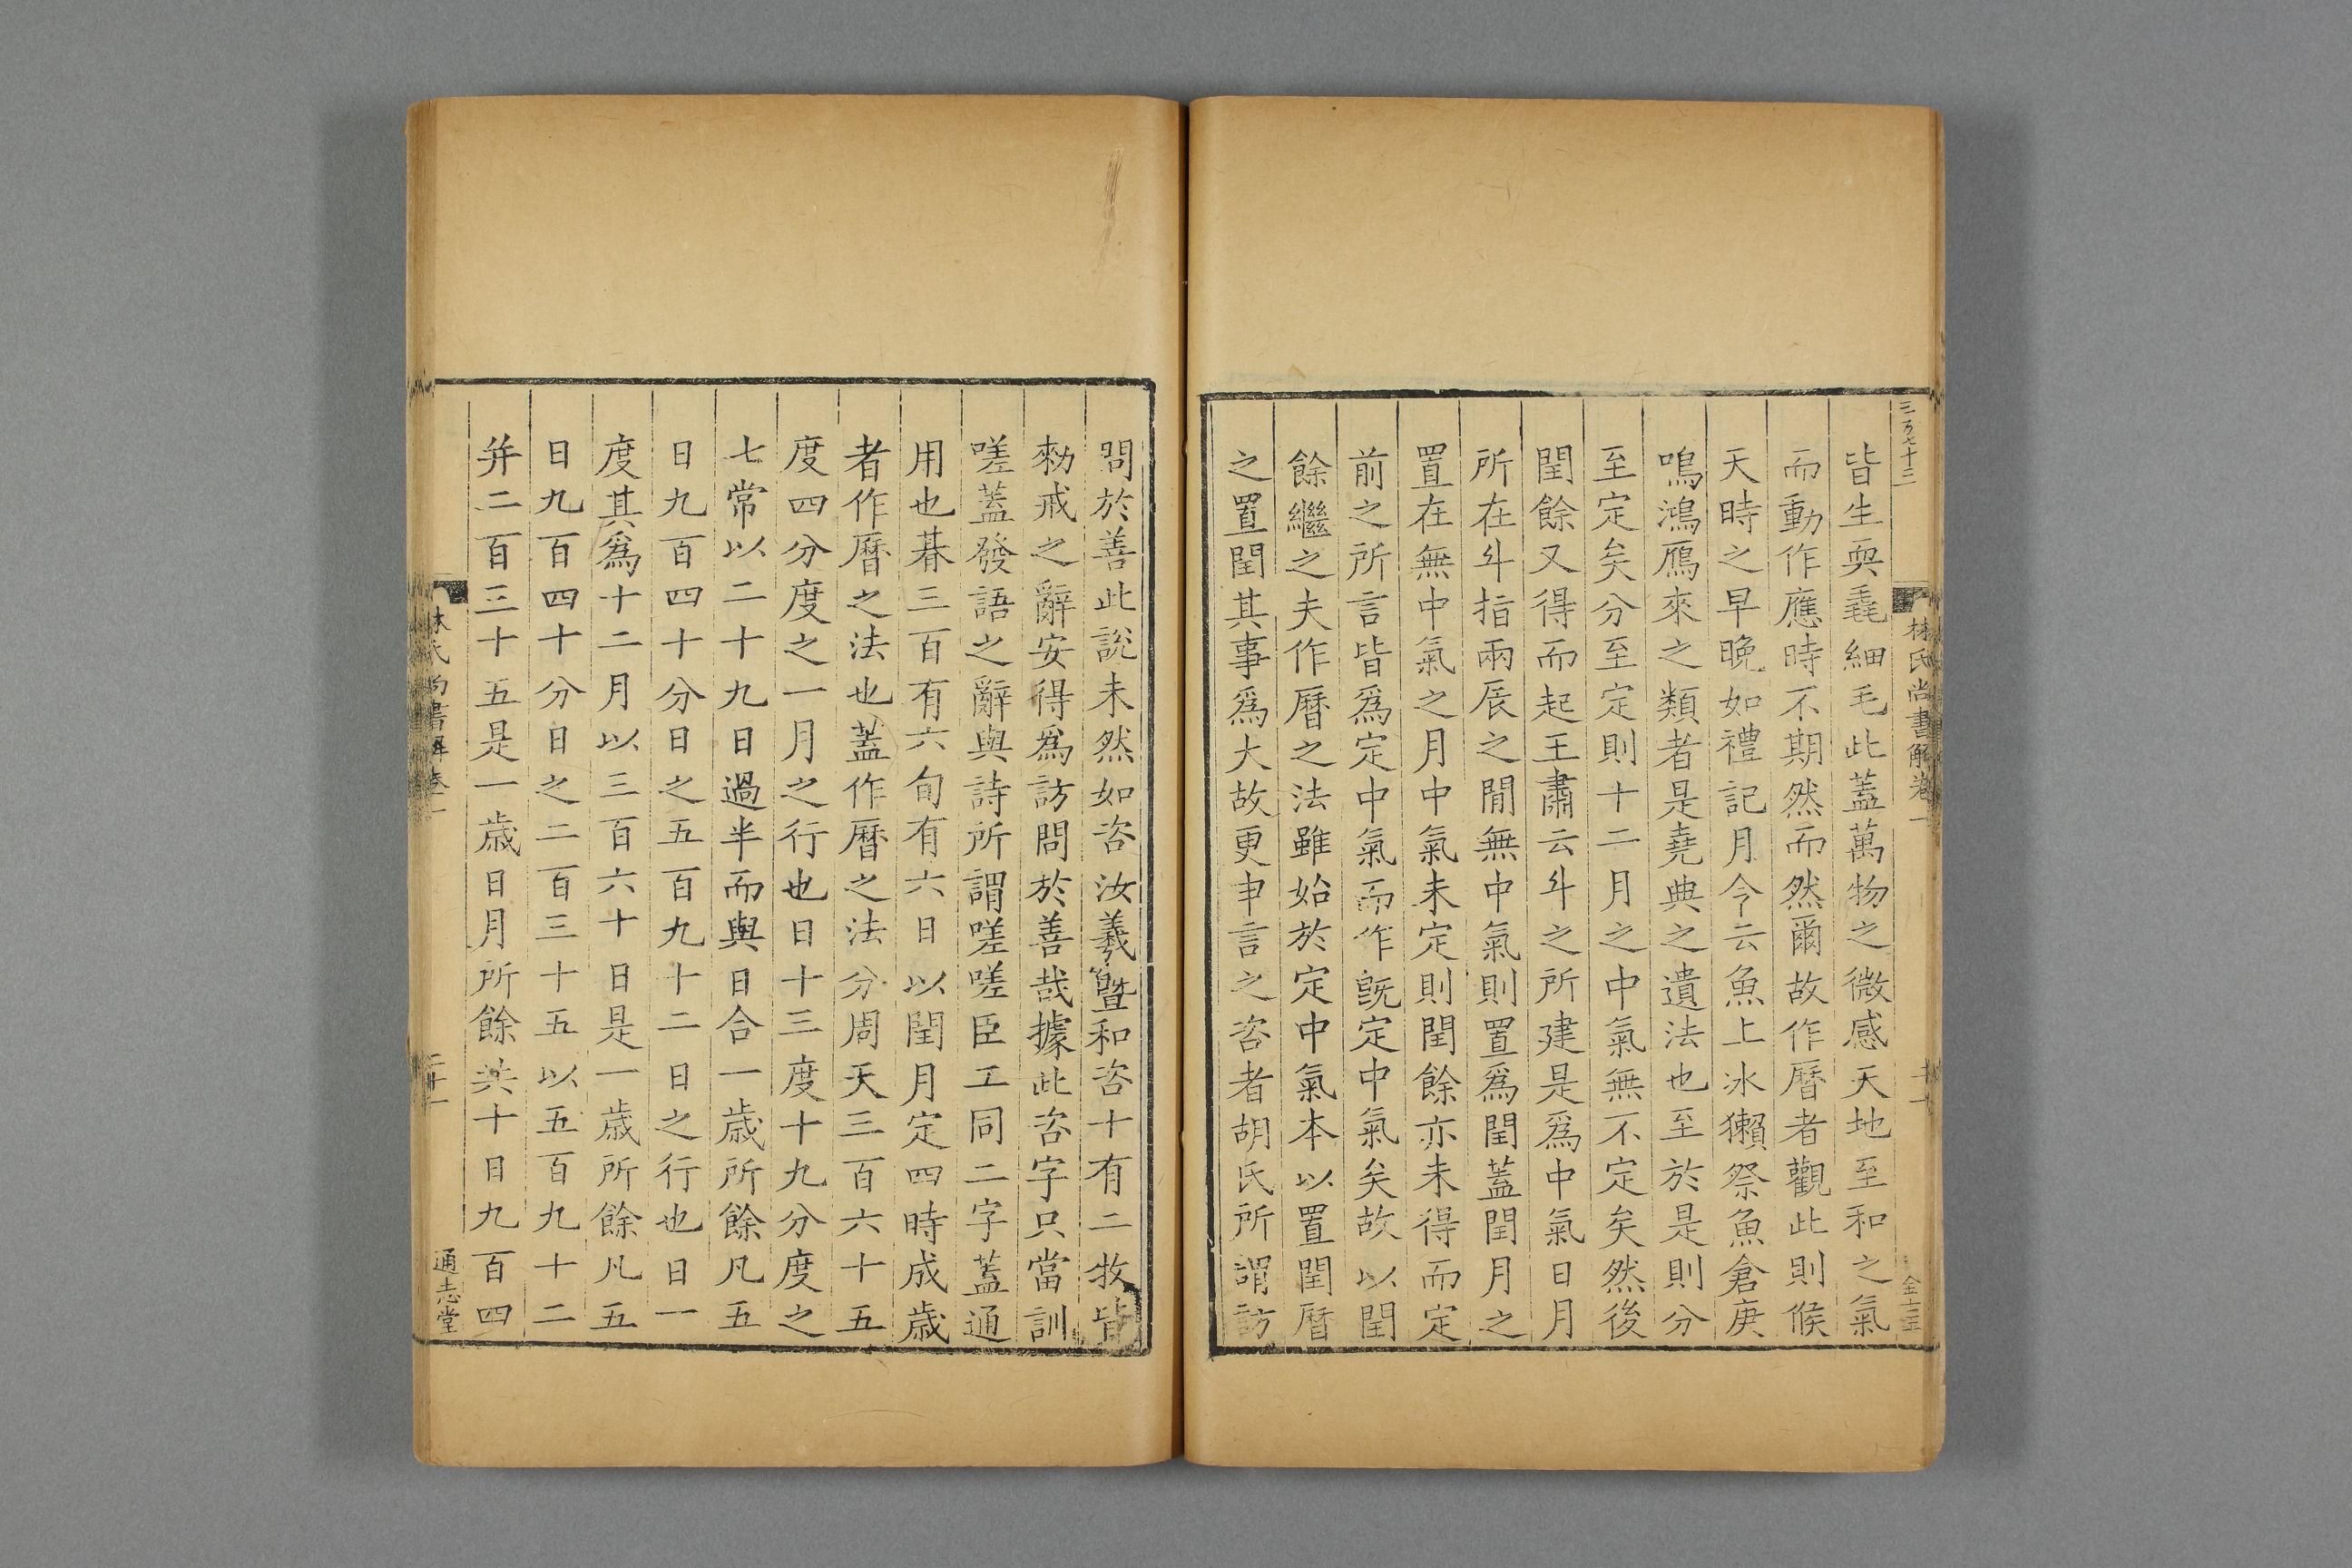 三百七十三
林氏尚書解卷一
全三
皆生耎毳細毛此蓋萬物之微感天地至和之氣
而動作應時不期然而然爾故作曆者觀此則候
天時之早晚如禮記月令云魚上冰獺祭魚倉庚
鳴鴻鴈來之類者是堯典之遺法也至於是則分
至定矣分至定則十二月之中氣無不定矣然後
閏餘又得而起王肅云斗之所建是爲中氣日月
所在斗指兩辰之閒無中氣則置爲閏蓋閏月之
置在無中氣之月中氣未定則閏餘亦未得而定
前之所言皆爲定中氣而作旣定中氣矣故以閏
餘繼之夫作曆之法雖始於定中氣本以置閏曆
之置閏其事爲大故更申言之咨者胡氏所謂訪
問於善此說未然如咨汝羲曁和咨十有二牧皆
勑戒之辭安得爲訪問於善哉據此咨字只當訓
嗟蓋發語之辭與詩所謂嗟嗟臣工同二字蓋通
用也朞三百有六旬有六日以閏月定四時成歲
者作曆之法也蓋作曆之法分周天三百六十五
度四分度之一月之行也日十三度十九分度之
七常以二十九日過半而與日合一歲所餘凡五
日九百四十分日之五百九十二日之行也日一
度其爲十二月以三百六十日是一歲所餘凡五
日九百四十分日之二百三十五以五百九十二
并二百三十五是一歲日月所餘共十日九百四
林氏尚書解卷一
二十一
通志堂